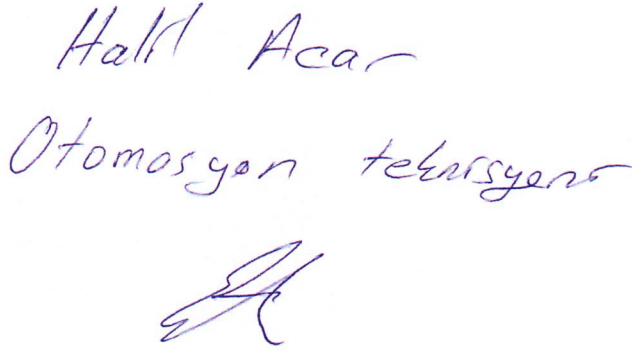 Halil Acar
Otomasyon teknisyeni